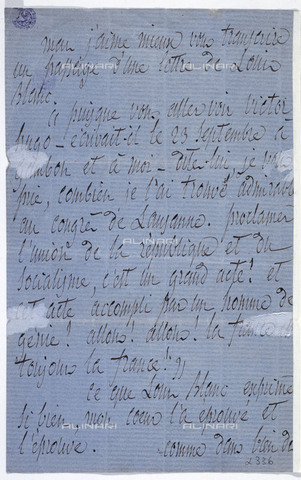 mais j'aime mieux vous transcrire
un passage d'une lettre de Louis
Blanc.
« puisque vous allez voir Victor
hugo – écrivait-il le 23 Septembre à
et à moi – dites lui, je vous
prie, combien je l'ai trouvé admirable
au congrès de Lausanne. proclamer
l'union de la république et du
socialisme, c'est un grand acte ! et
cet acte accompli par un homme de
génie ! allons ! allons ! la france est
toujours la france ! »
ce que Louis Blanc exprime
si bien, mon coeur l'a éprouvé et
l'éprouve. comme dans bien de
2336
ALINARI
ALINARI
ALINARI
ALINARI